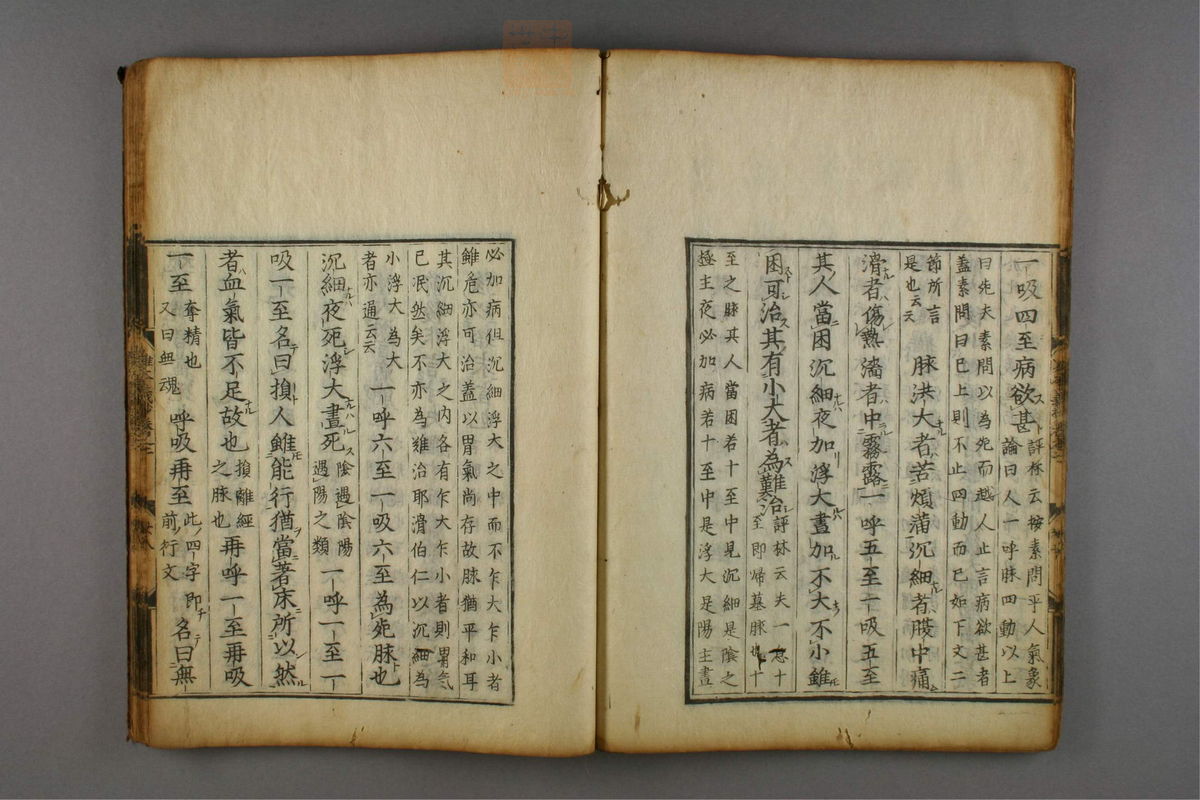 一吸四至病欲甚 評林云按素問平人氣象
論曰人一呼脉四動以上
曰死夫素問以為死而越人止言病欲甚者
蓋素問曰已上則不止四動而已如下文二
節所言
是也云云
脉洪大者苦煩滿沉細者腹中痛
滑者傷熱濇者中霧露一呼五至一吸五至
其人當困沉細夜加浮大晝加不大不小雖
困可治其有小大者為難治 評林云夫一息十
至即歸墓脉也十
至之脉其人當困若十至中見沉細是陰之
極主夜必加病若十至中是浮大是陽主晝
必加病但沉細浮大之中而不乍大乍小者
雖危亦可治蓋以胃氣尚存故脉猶平和耳
其沉細浮大之內各有乍大乍小者則胃氣
已泯然矣不亦為難治耶滑伯仁以沉細為
小浮大為大
者亦通云云
一呼六至一吸六至為死脉也
沉細夜死浮大晝死 陰遇陰陽
遇陽之類
一呼一至一
吸一至名曰損人雖能行猶當著床所以然
者血氣皆不足故也 損離經
之脉也
再呼一至再吸
一至 奪精也
又曰無魂
呼吸再至 此四字即
前行文
名曰無